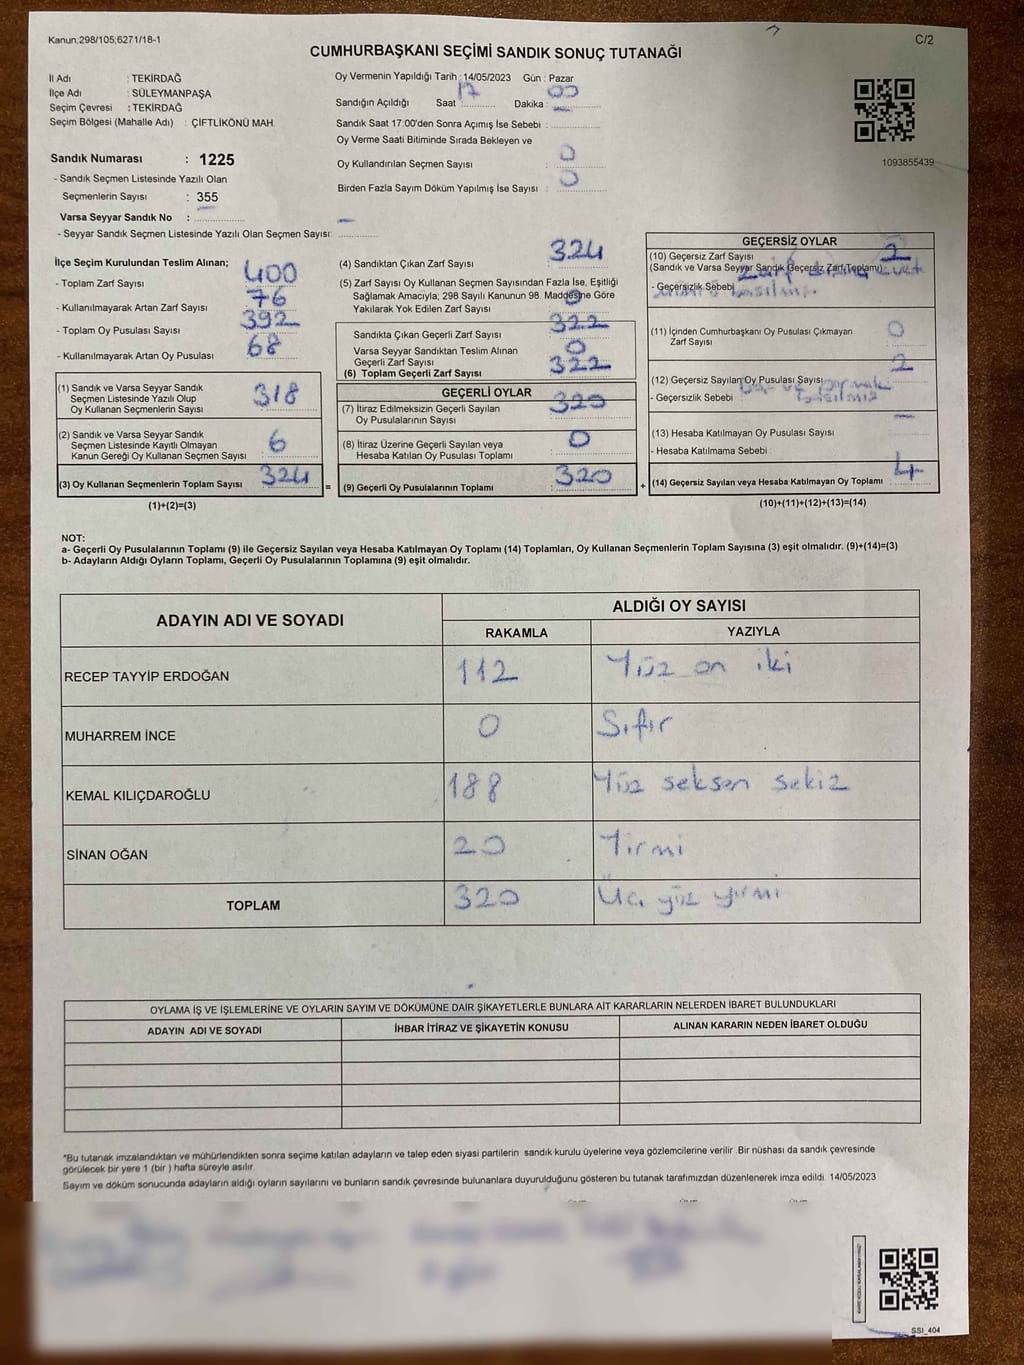 Kanun:298/105;6271/18-1
C/2
CUMHURBAŞKANI SEÇİMİ SANDIK SONUÇ TUTANAĞI
İl Adı : TEKİRDAĞ
İlçe Adı : SÜLEYMANPAŞA
Seçim Çevresi : TEKİRDAĞ
Seçim Bölgesi (Mahalle Adı) : ÇİFTLİKÖNÜ MAH.
Sandık Numarası : 1225
- Sandık Seçmen Listesinde Yazılı Olan
Seçmenlerin Sayısı : 355
Varsa Seyyar Sandık No :
- Seyyar Sandık Seçmen Listesinde Yazılı Olan Seçmen Sayısı: -
Oy Vermenin Yapıldığı Tarih : 14/05/2023 Gün : Pazar
Sandığın Açıldığı Saat 17 Dakika : 00
Sandık Saat 17:00'den Sonra Açımış İse Sebebi : -
Oy Verme Saati Bitiminde Sırada Bekleyen ve
Oy Kullandırılan Seçmen Sayısı : 0
Birden Fazla Sayım Döküm Yapılmış İse Sayısı : 0
1093855439
İlçe Seçim Kurulundan Teslim Alınan;
- Toplam Zarf Sayısı : 400
- Kullanılmayarak Artan Zarf Sayısı : 76
- Toplam Oy Pusulası Sayısı : 392
- Kullanılmayarak Artan Oy Pusulası : 68
(1) Sandık ve Varsa Seyyar Sandık
Seçmen Listesinde Yazılı Olup
Oy Kullanan Seçmenlerin Sayısı : 318
(2) Sandık ve Varsa Seyyar Sandık
Seçmen Listesinde Kayıtlı Olmayan
Kanun Gereği Oy Kullanan Seçmen Sayısı : 6
(3) Oy Kullanan Seçmenlerin Toplam Sayısı : 324
(1)+(2)=(3)
(4) Sandıktan Çıkan Zarf Sayısı : 324
(5) Zarf Sayısı Oy Kullanan Seçmen Sayısından Fazla İse, Eşitliği
Sağlamak Amacıyla; 298 Sayılı Kanunun 98. Maddesine Göre
Yakılarak Yok Edilen Zarf Sayısı : 0
Sandıkta Çıkan Geçerli Zarf Sayısı : 322
Varsa Seyyar Sandıktan Teslim Alınan
Geçerli Zarf Sayısı : 0
(6) Toplam Geçerli Zarf Sayısı : 322
GEÇERLİ OYLAR
(7) İtiraz Edilmeksizin Geçerli Sayılan
Oy Pusulalarının Sayısı : 320
(8) İtiraz Üzerine Geçerli Sayılan veya
Hesaba Katılan Oy Pusulası Toplamı : 0
= (9) Geçerli Oy Pusulalarının Toplamı : 320
GEÇERSİZ OYLAR
(10) Geçersiz Zarf Sayısı : 2
(Sandık ve Varsa Seyyar Sandık Geçersiz Zarf Toplamı)
- Geçersizlik Sebebi : zarf
(11) İçinden Cumhurbaşkanı Oy Pusulası Çıkmayan
Zarf Sayısı : 0
(12) Geçersiz Sayılan Oy Pusulası Sayısı : 2
- Geçersizlik Sebebi :
(13) Hesaba Katılmayan Oy Pusulası Sayısı : -
- Hesaba Katılmama Sebebi :
+ (14) Geçersiz Sayılan veya Hesaba Katılmayan Oy Toplamı : 4
(10)+(11)+(12)+(13)=(14)
NOT:
a- Geçerli Oy Pusulalarının Toplamı (9) ile Geçersiz Sayılan veya Hesaba Katılmayan Oy Toplamı (14) Toplamları, Oy Kullanan Seçmenlerin Toplam Sayısına (3) eşit olmalıdır. (9)+(14)=(3)
b- Adayların Aldığı Oyların Toplamı, Geçerli Oy Pusulalarının Toplamına (9) eşit olmalıdır.
ADAYIN ADI VE SOYADI
ALDIĞI OY SAYISI
RAKAMLA YAZIYLA
RECEP TAYYİP ERDOĞAN 112 Yüz on iki
MUHARREM İNCE 0 Sıfır
KEMAL KILIÇDAROĞLU 188 Yüz seksen sekiz
SİNAN OĞAN 20 Yirmi
TOPLAM 320 Üç yüz yirmi
OYLAMA İŞ VE İŞLEMLERİNE VE OYLARIN SAYIM VE DÖKÜMÜNE DAİR ŞİKAYETLERLE BUNLARA AİT KARARLARIN NELERDEN İBARET BULUNDUKLARI
ADAYIN ADI VE SOYADI İHBAR İTİRAZ VE ŞİKAYETİN KONUSU ALINAN KARARIN NEDEN İBARET OLDUĞU
*Bu tutanak imzalandıktan ve mühürlendikten sonra seçime katılan adayların ve talep eden siyasi partilerin sandık kurulu üyelerine veya gözlemcilerine verilir. Bir nüshası da sandık çevresinde
görülecek bir yere 1 (bir ) hafta süreyle asılır.
Sayım ve döküm sonucunda adayların aldığı oyların sayılarını ve bunların sandık çevresinde bulunanlara duyurulduğunu gösteren bu tutanak tarafımızdan düzenlenerek imza edildi. 14/05/2023
SSI_404